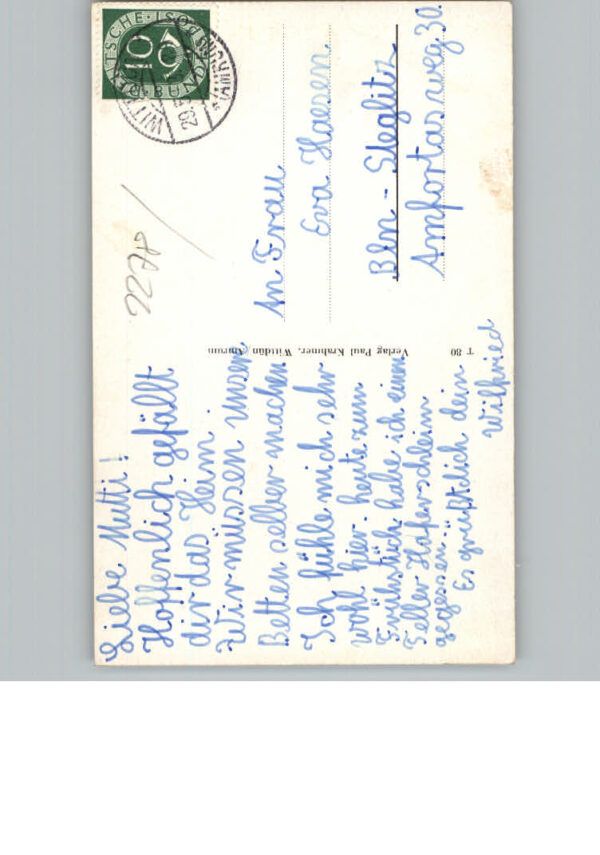 Liebe Mutti!
Hoffenlich gefällt
dir das Heim.
Wir müssen unsere
Betten selber machen
Ich fühle mich sehr
wohl hier. heute zum
Frühstück habe ich einen
Teller Haferschleim
gegessen. Es grüßt dich dein
Wilfried
2278
An Frau
Eva Haesen
Bln - Steglitz
Amfortasweg 30.
DEUTSCHE BUNDESPOST
10
WITTDÜN
(AMRUM)
29.
Verlag Paul Krahmer, Wittdün/Amrum
T 80